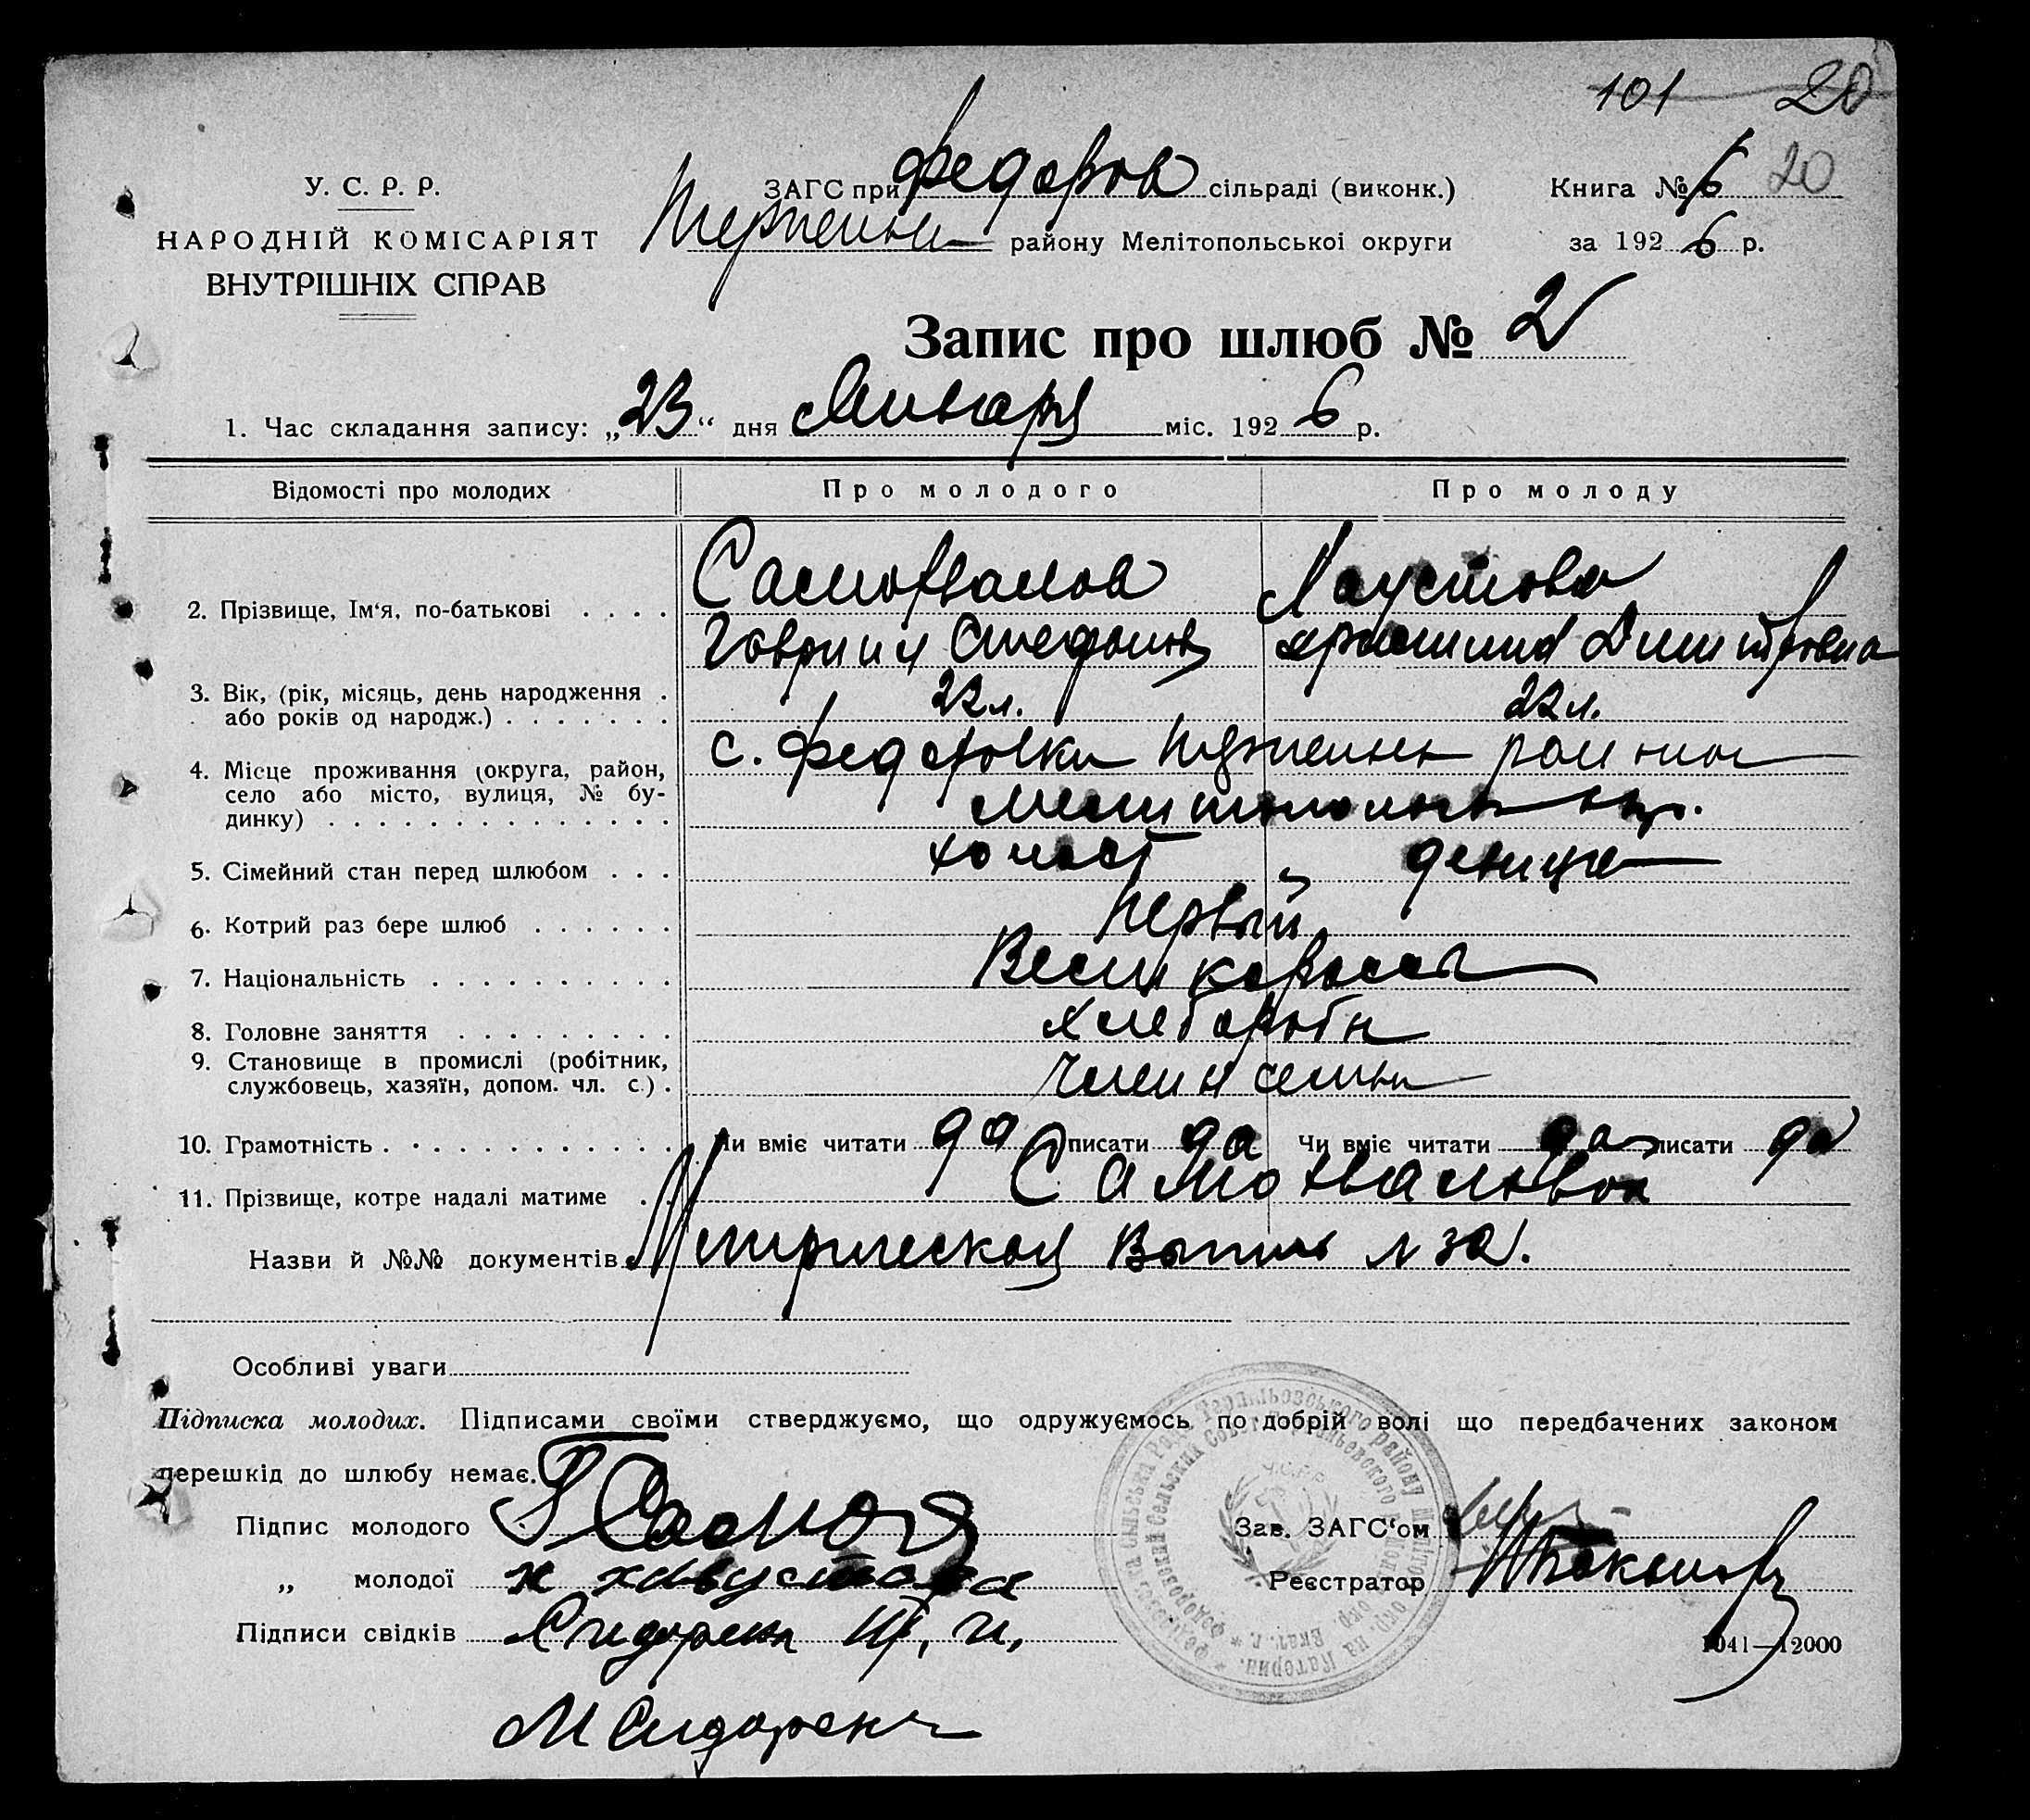 101 20
У. С. Р. Р.
НАРОДНІЙ КОМІСАРІЯТ
ВНУТРІШНІХ СПРАВ
ЗАГС при Федоров сільраді (виконк.) Книга № 6 20
району Мелітопольської округи за 1926 р.
Запис про шлюб № 2
1. Час складання запису: „23“ дня Января міс. 1926 р.
Відомості про молодих Про молодого Про молоду
2. Прізвище, Ім‘я, по-батькові Самохвалов Хаустова
Гавриил Стефанов Димитровна
3. Вік, (рік, місяць, день народження
або років од народж.) 22 л. 22 л.
4. Місце проживання (округа, район, с. Федоровки района
село або місто, вулиця, № бу-
динку) окр.
5. Сімейний стан перед шлюбом холост девица
6. Котрий раз бере шлюб первый
7. Національність Великороссы
8. Головне заняття хлебороби
9. Становище в промислі (робітник,
службовець, хазяїн, допом. чл. с.) Член семьи
10. Грамотність Чи вміє читати да писати да Чи вміє читати да писати да
11. Прізвище, котре надалі матиме Самохвалов
Назви й №№ документів Метрическая Выпись
Особливі уваги
Підписка молодих. Підписами своїми стверджуємо, що одружуємось по добрій волі що передбачених законом
перешкід до шлюбу немає.
Підпис молодого Г Само Зав. ЗАГС‘ом
„ молодої х хавустова Реєстратор
Підписи свідків Сидоренко
1041—12000
М Сидоренко